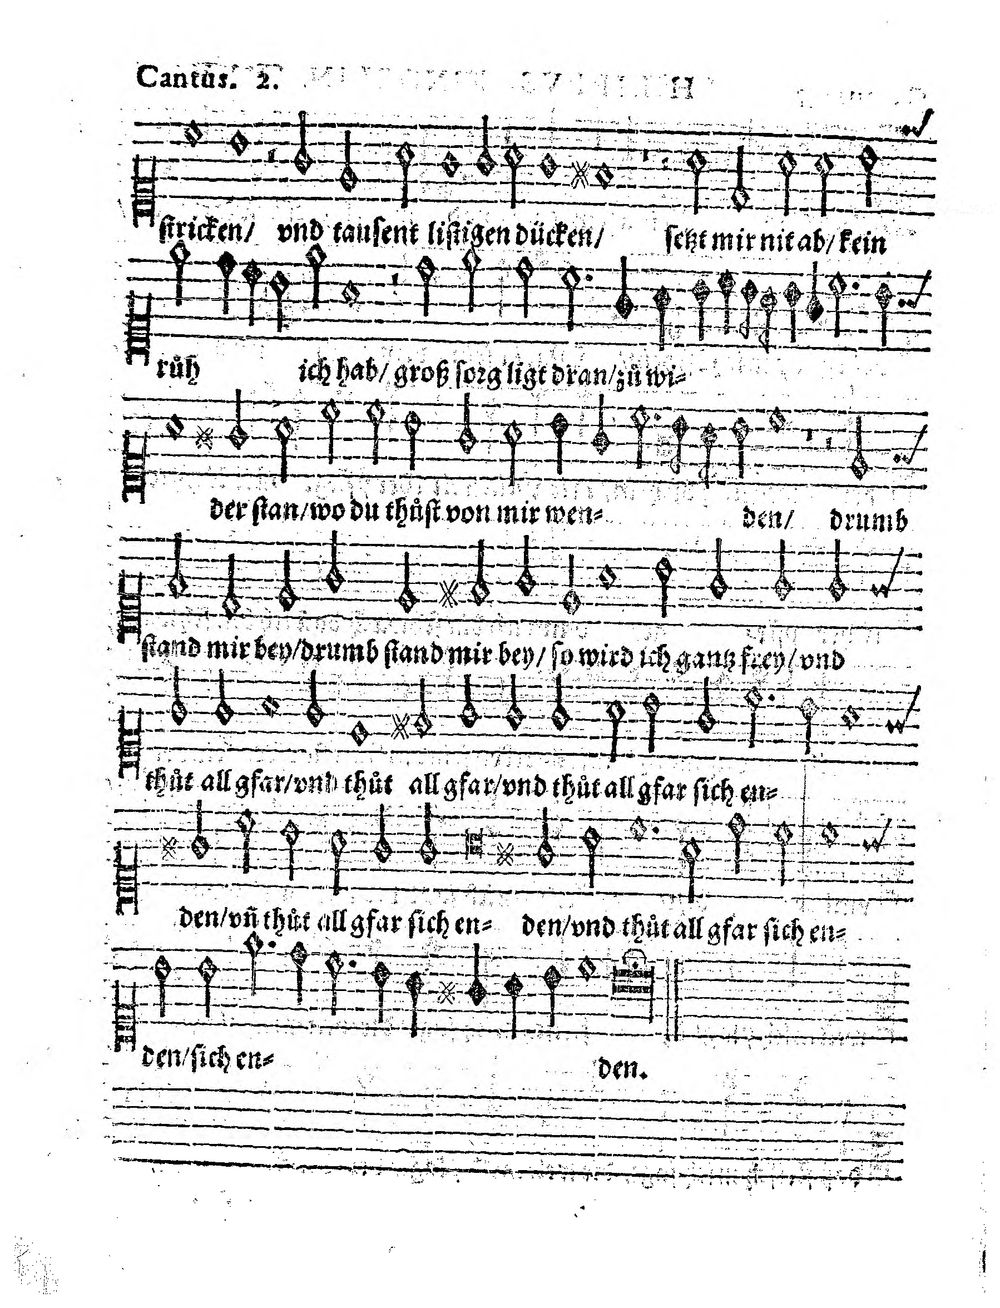 Cantus. 2.
stricken/ vnd tausent listigen dücken/ setzt mir nit ab/ kein
růh ich hab/ groß sorg ligt dran/zů wi-
der stan/wo du thůst von mir wen- den/ drumb
stand mir bey/drumb stand mir bey/ so wird ich gantz frey/ vnd
thůt all gfar/vnd thůt all gfar/vnd thůt all gfar sich en-
den/vñ thůt all gfar sich en- den/vnd thůt all gfar sich en-
den/sich en- den.